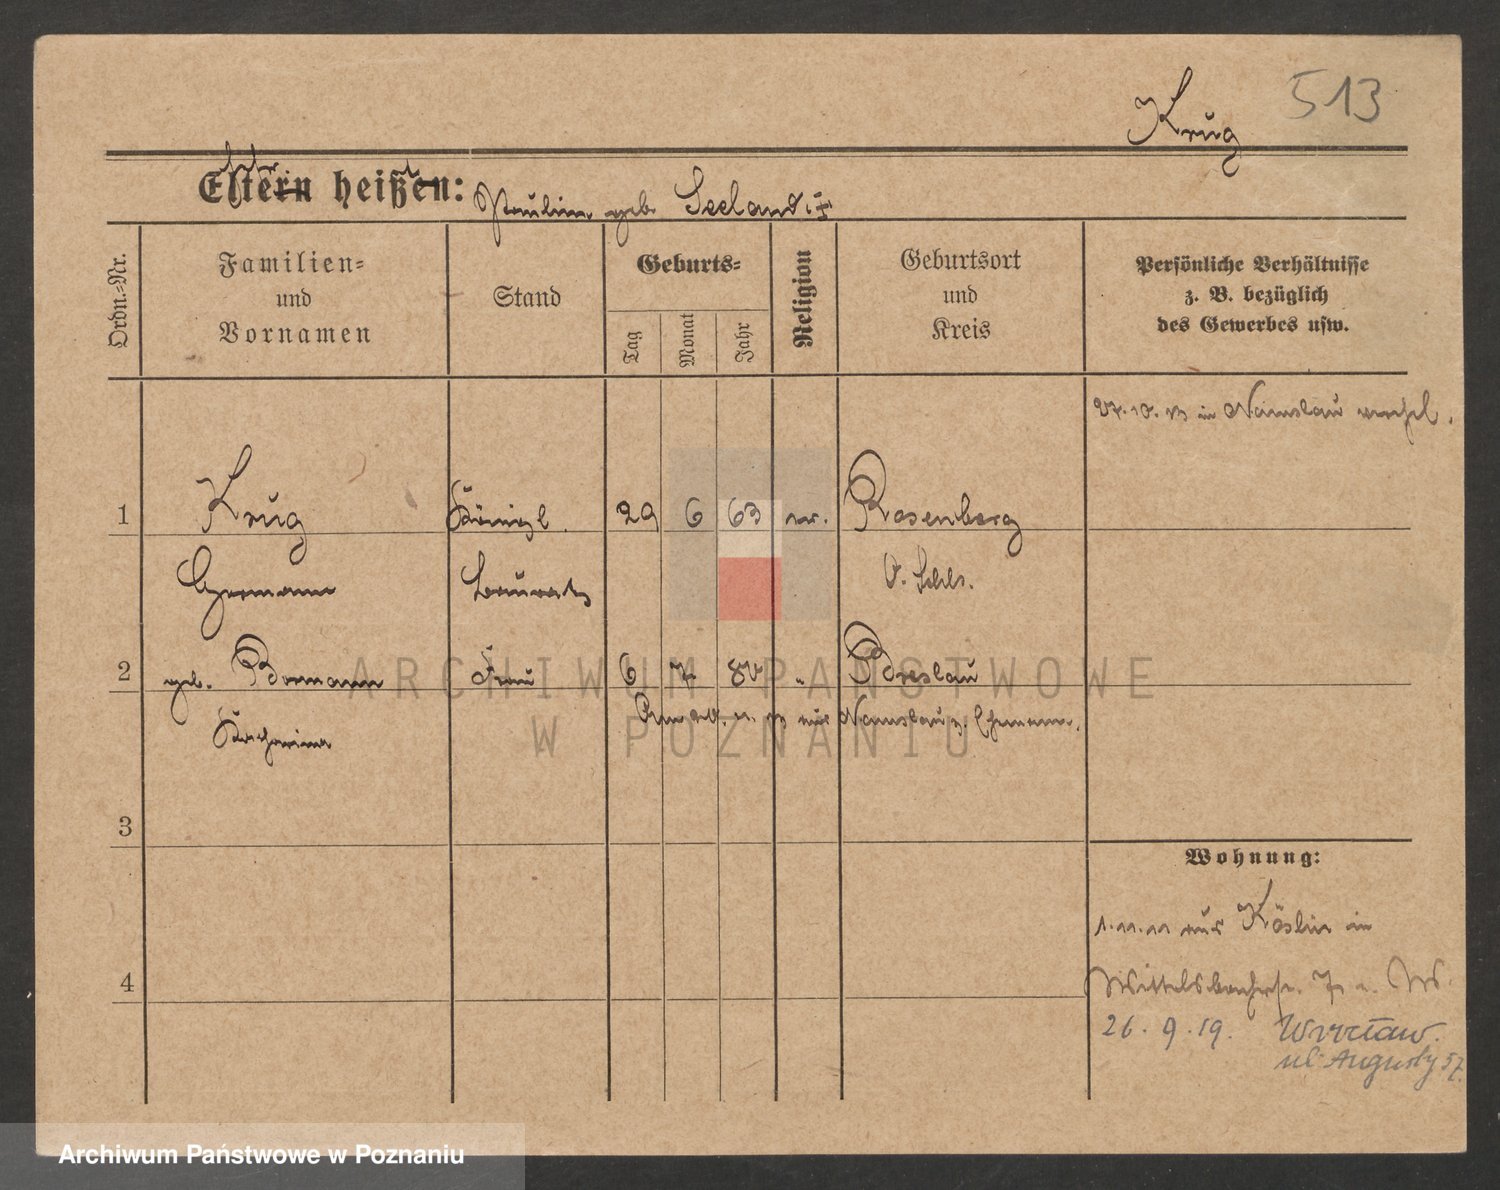 513
Krug
Eltern heißen: Pauline geb. Seeland. ‡
Ordn.=Nr.
Familien=
und
Vornamen
Stand
Geburts=
Tag
Monat
Jahr
Religion
Geburtsort
und
Kreis
Persönliche Verhältnisse
z. B. bezüglich
des Gewerbes usw.
27.10.13 in Namslau verehel.
1 Krug Königl. 29 6 63 ev. Rosenberg
Hermann Baurat O. Schls.
2 geb. Bormann Frau 6 7 82 " Breslau
Katharina
Namslau z. Ehemann.
3
4
Wohnung:
1.11.11 aus Köslin in
Wittelsbacherstr. 7
26.9.19. Wrocław.
ul Augusty 57.
ARCHIWUM PAŃSTWOWE
W POZNANIU
Archiwum Państwowe w Poznaniu